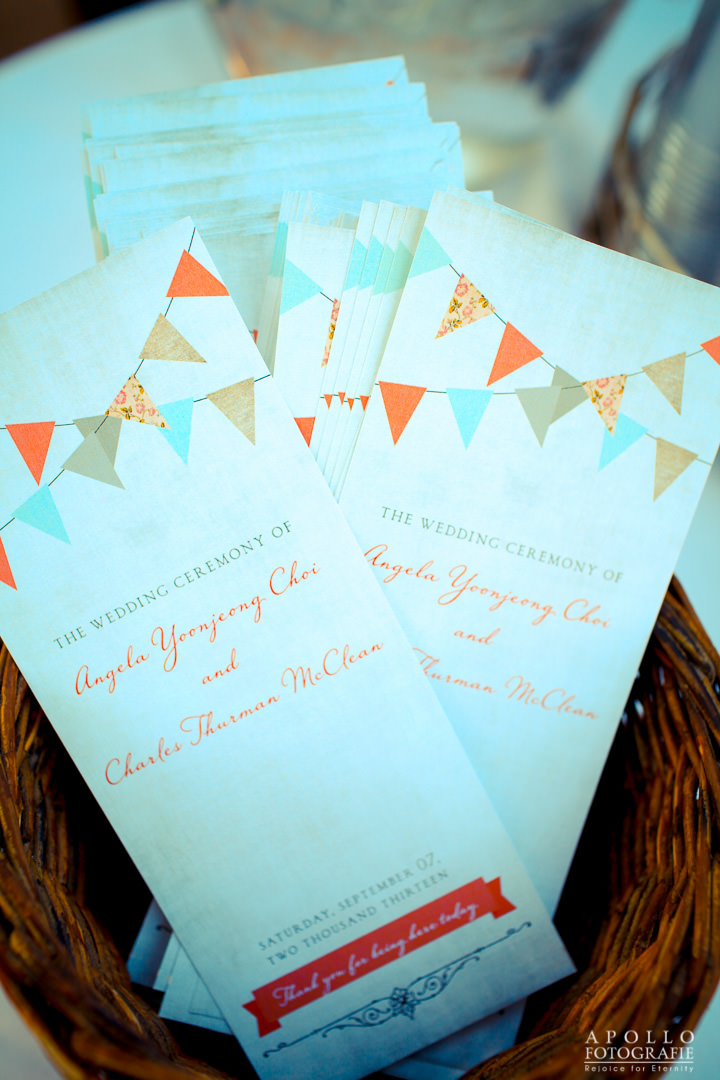 THE WEDDING CEREMONY OF
Angela Yoonjeong Choi
and
Charles Thurman McClean
SATURDAY, SEPTEMBER 07,
TWO THOUSAND THIRTEEN
Thank you for being here today
THE WEDDING CEREMONY OF
Angela Yoonjeong Choi
and
Thurman McClean
APOLLO
FOTOGRAFIE
Rejoice for Eternity